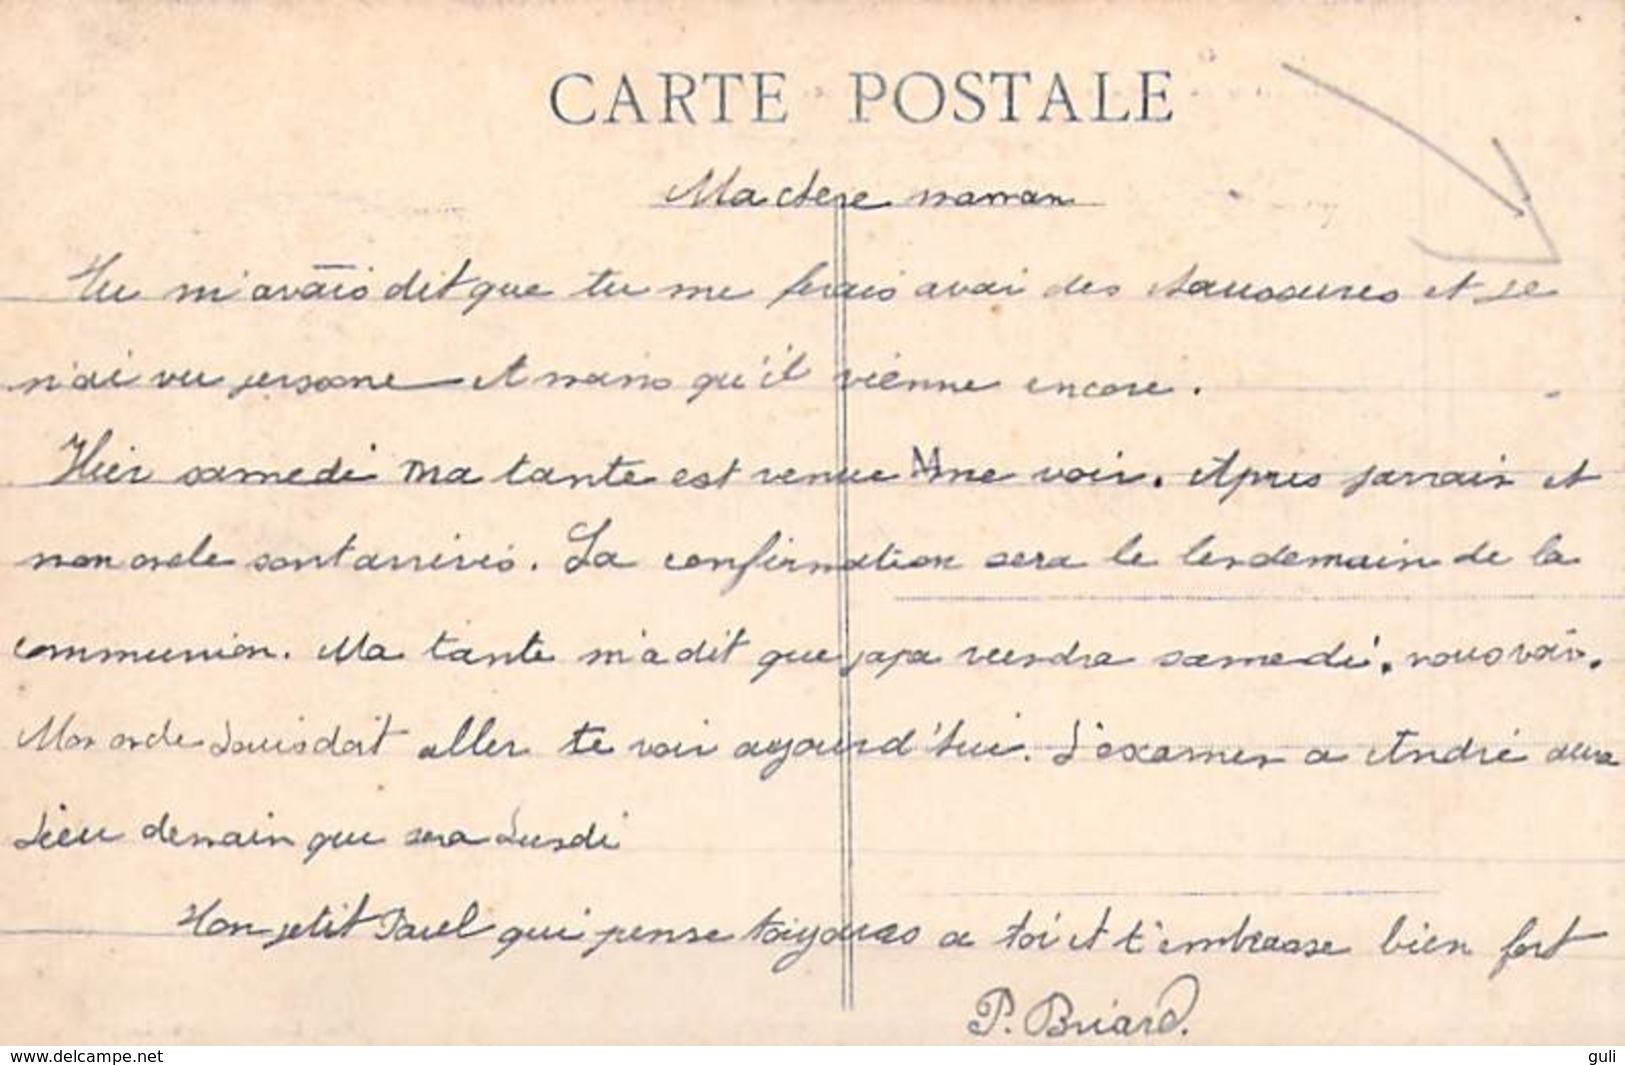 CARTE POSTALE
Ma chere maman
Tu m'avais dit que tu me ferais avoi des chaussures et je
n'ai vu persone et mains qu'il vienne encore.
Hier samedi ma tante est venue me voir. Apres parrain et
mon oncle sont arrivés. La confirmation sera le lendemain de la
communion. Ma tante m'a dit que papa viendra samedi. nous voir.
Mon oncle Louis doit aller te voir aujourd'hui. L'examen a André aura
lieu demain qui sera Lundi
Ton petit Paul qui pense toujours a toi et t'embrasse bien fort
P. Briard.
www.delcampe.net
guli